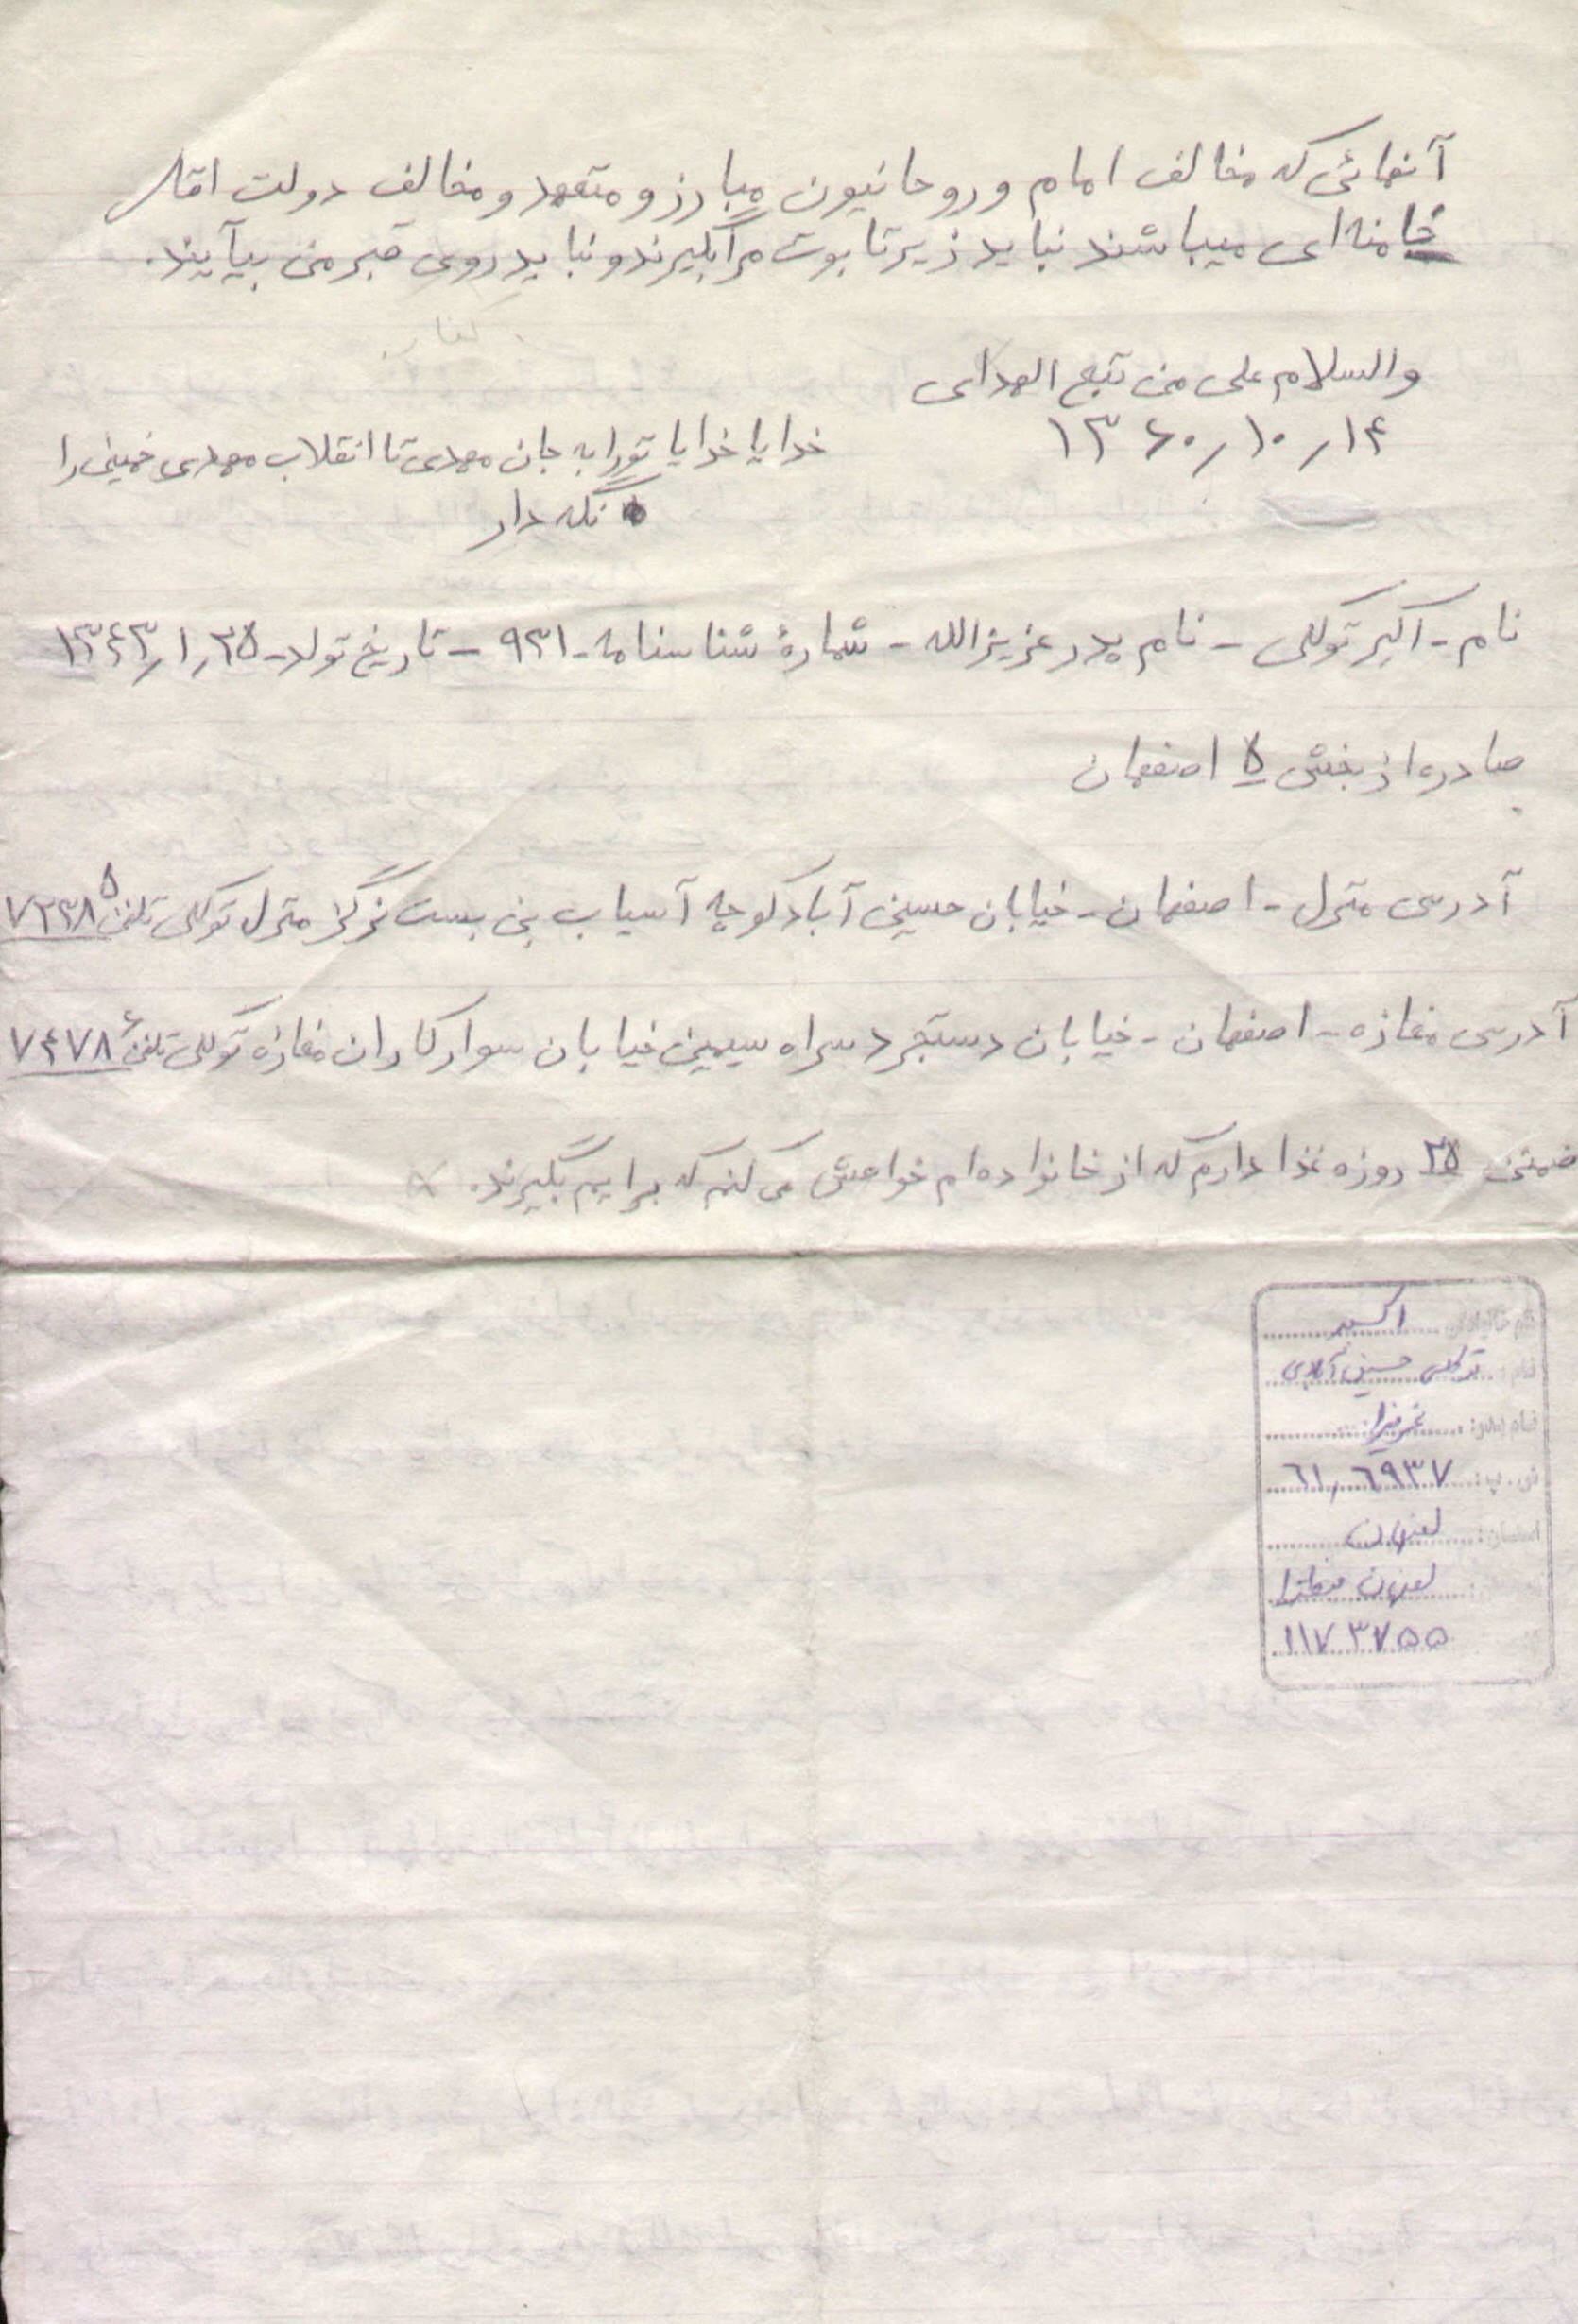 آنهائی که مخالف امام و روحانیون مبارز و متعهد و مخالف دولت اقای
خامنه ای میباشند نباید زیر تابوت مرا بگیرند و نباید روی قبر من بیآیند.
والسلام علی من تبع الهدای
۱۳۶۰/۱۰/۱۴
خدایا خدایا تورا به جان مهدی تا انقلاب مهدی خمینی را
نگه دار
نام - اکبر توکلی - نام پدر عزیزالله - شمارۀ شناسنامه - ۹۳۱ - تاریخ تولد - ۱۳۴۳/۱/۲۵
صادره از بخش ۵ اصفهان
آدرس منزل - اصفهان - خیابان حسین آباد کوچه آسیاب بن بست نرگز منزل توکلی تلفن ۷۲۳۸۵
آدرس مغازه - اصفهان - خیابان دستجرد سراه سیمین خیابان سوارکاران مغازه توکلی تلفن ۷۴۷۸۶
ضمنن ۲۵ روزه غذا دارم که از خانواده ام خواهش می کنم که برایم بگیرند.
نام خانوادگی: اکبر
نام: توکلی حسین آبادی
نام پدر:
ش. پ: ۶۱٫۶۹۳۷
استان: اصفهان
اصفهان
۱۱۷۳۷۵۵